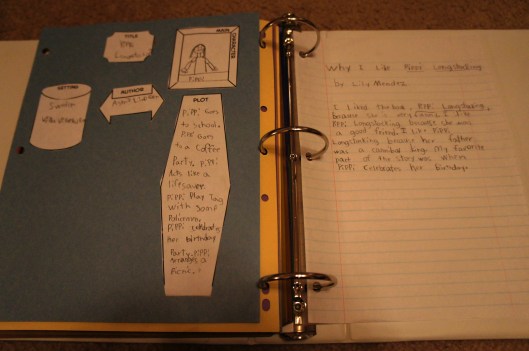 TITLE
Pippi
Longstocking
MAIN
CHARACTER
Pippi
SETTING
Sweden
AUTHOR
PLOT
Pippi Goes
to School.
Pippi Goes
to a Coffee
Party. Pippi
Acts Like a
lifesaver.
Pippi Play Tag
with some
Policemen.
Pippi celebrate
her birthday
Party. Pippi
Arranges a
Picnic.
Why I Like Pippi Longstocking
by Lily Mendez
I liked the book, Pippi Longstocking,
because she is very funny. I like
Pippi Longstocking because she was
a good friend. I like Pippi
Longstocking because her father
was a cannibal king. My favorite
part of the story was when
Pippi celebrates her birthday.